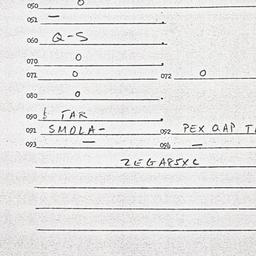 050 0
051 —
060 Q-S
070 0
071 0 072 0
080 0
090 TAR
091 SMOLA- 092 PEX QAP
093 — 096 —
2EGAP5XC